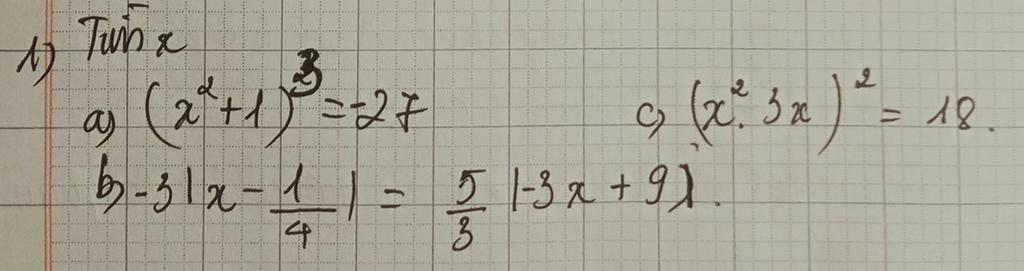 1) Tìm x
a) (x²+1)³ = -27
c) (x². 3x)² = 18.
b) -3|x - 1/4| = 5/3 |-3x + 9|.